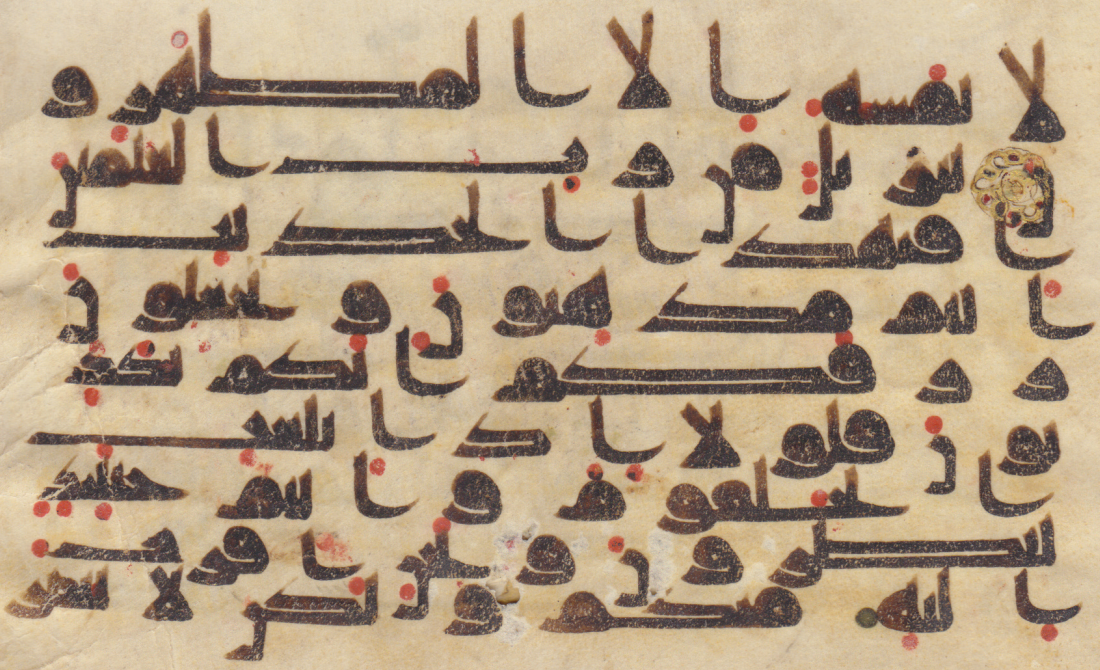 لا يمسه الا المطهرو
ن تنزيل من رب العلمين
افبهذا الحديث
انتم مدهنون وتجعلون
رزقكم انكم تكذ
بون فلولا اذا بلغت
الحلقوم وانتم حينئذ
تنظرون ونحن اقرب
اليه منكم ولكن لا تبصر